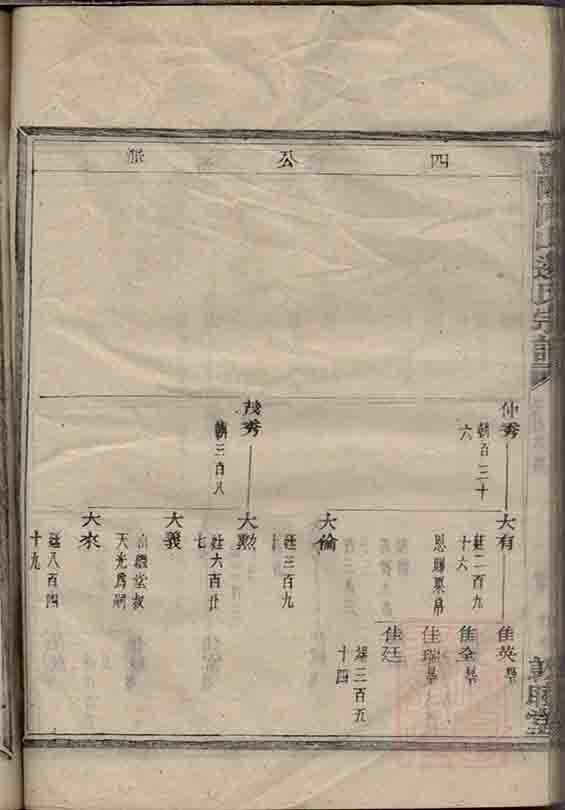 四公派
氏宗譜
仲秀
朝百三十
六
大有
廷二百九
十六
恩賜粟帛
佳英
佳全
佳瑞
佳廷
堪三百五
十四
大倫
廷三百九
茂秀
朝三百八
大勲
廷六百廿
七
大義
出繼堂叔
天光爲嗣
大來
廷八百四
十九